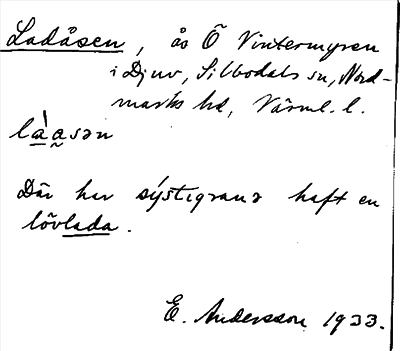 Ladåsen, ås Ö Vintermyren
i Djuv, Silbodals sn, Nord-
marks hd, Värml. l.
là̱a̰sən
Där har sýstigranə haft en
lövlada.
E. Andersson 1933.